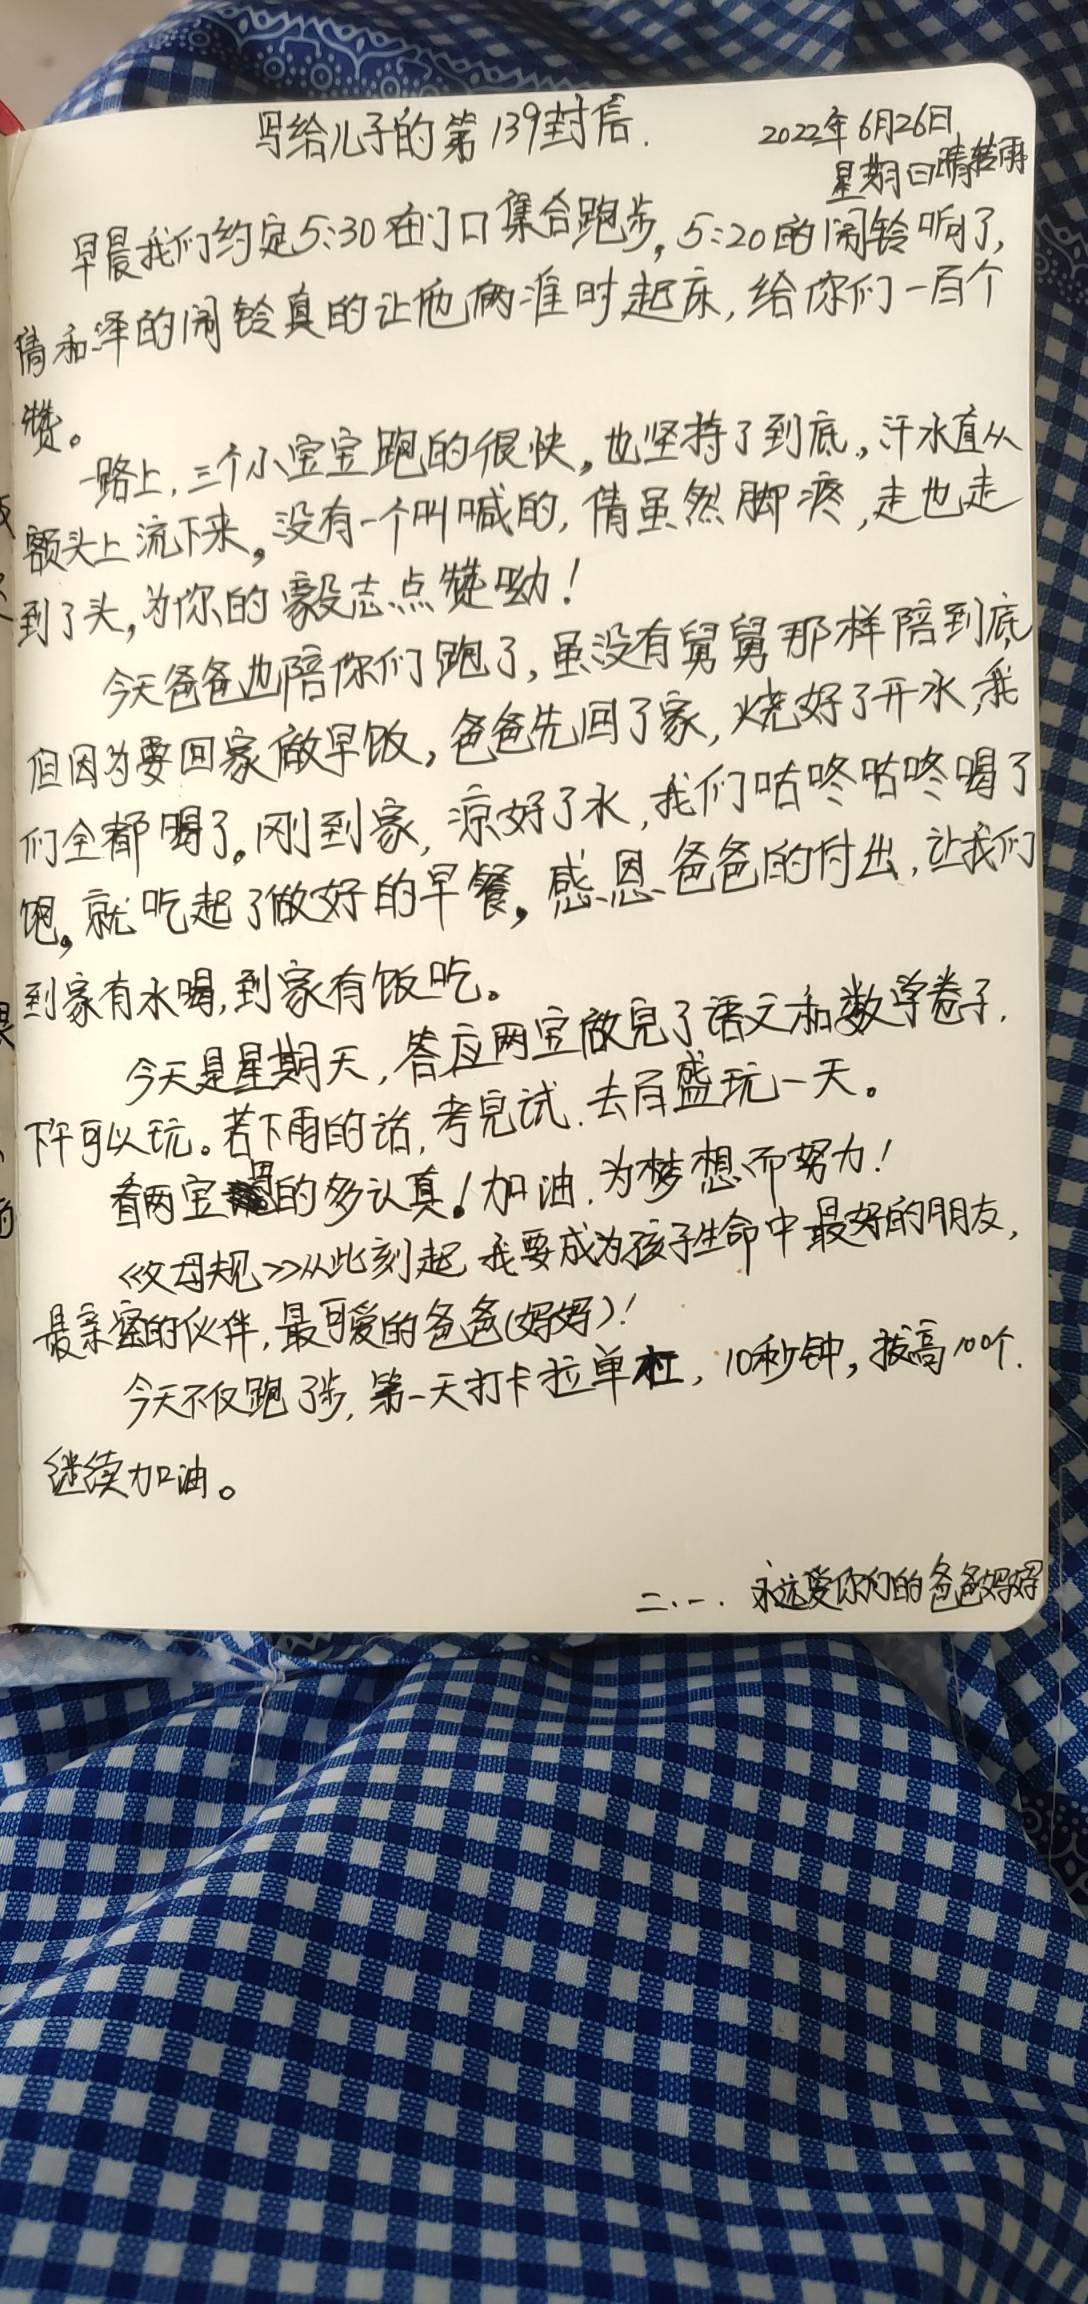 写给儿子的第139封信.
2022年6月26日
星期日晴转雨
早晨我们约定5:30在门口集合跑步，5:20的闹铃响了，
倩和泽的闹铃真的让他俩准时起床，给你们一百个
赞。
一路上，三个小宝宝跑的很快，也坚持了到底，汗水直从
额头上流下来。没有一个叫喊的，倩虽然脚疼，走也走
到了头，为你的毅志点赞呦！
今天爸爸也陪你们跑了，虽没有舅舅那样陪到底
但因为要回家做早饭，爸爸先回了家，烧好了开水，我
们全都喝了。刚到家，凉好了水，我们咕咚咕咚喝了
饱。就吃起了做好的早餐。感恩爸爸的付出，让我们
到家有水喝，到家有饭吃。
今天是星期天，答应两宝做完了语文和数学卷子，
下午可以玩。若下雨的话，考完试，去盛玩一天。
看两宝的多认真！加油，为梦想而努力！
《父母规》从此刻起 我要成为孩子生命中最好的朋友，
最亲密的伙伴，最可爱的爸爸（妈妈）！
今天不仅跑了步，第一天打卡拉单杠，10秒钟，拔高100个.
继续加油。
二.一. 永远爱你们的爸爸妈妈